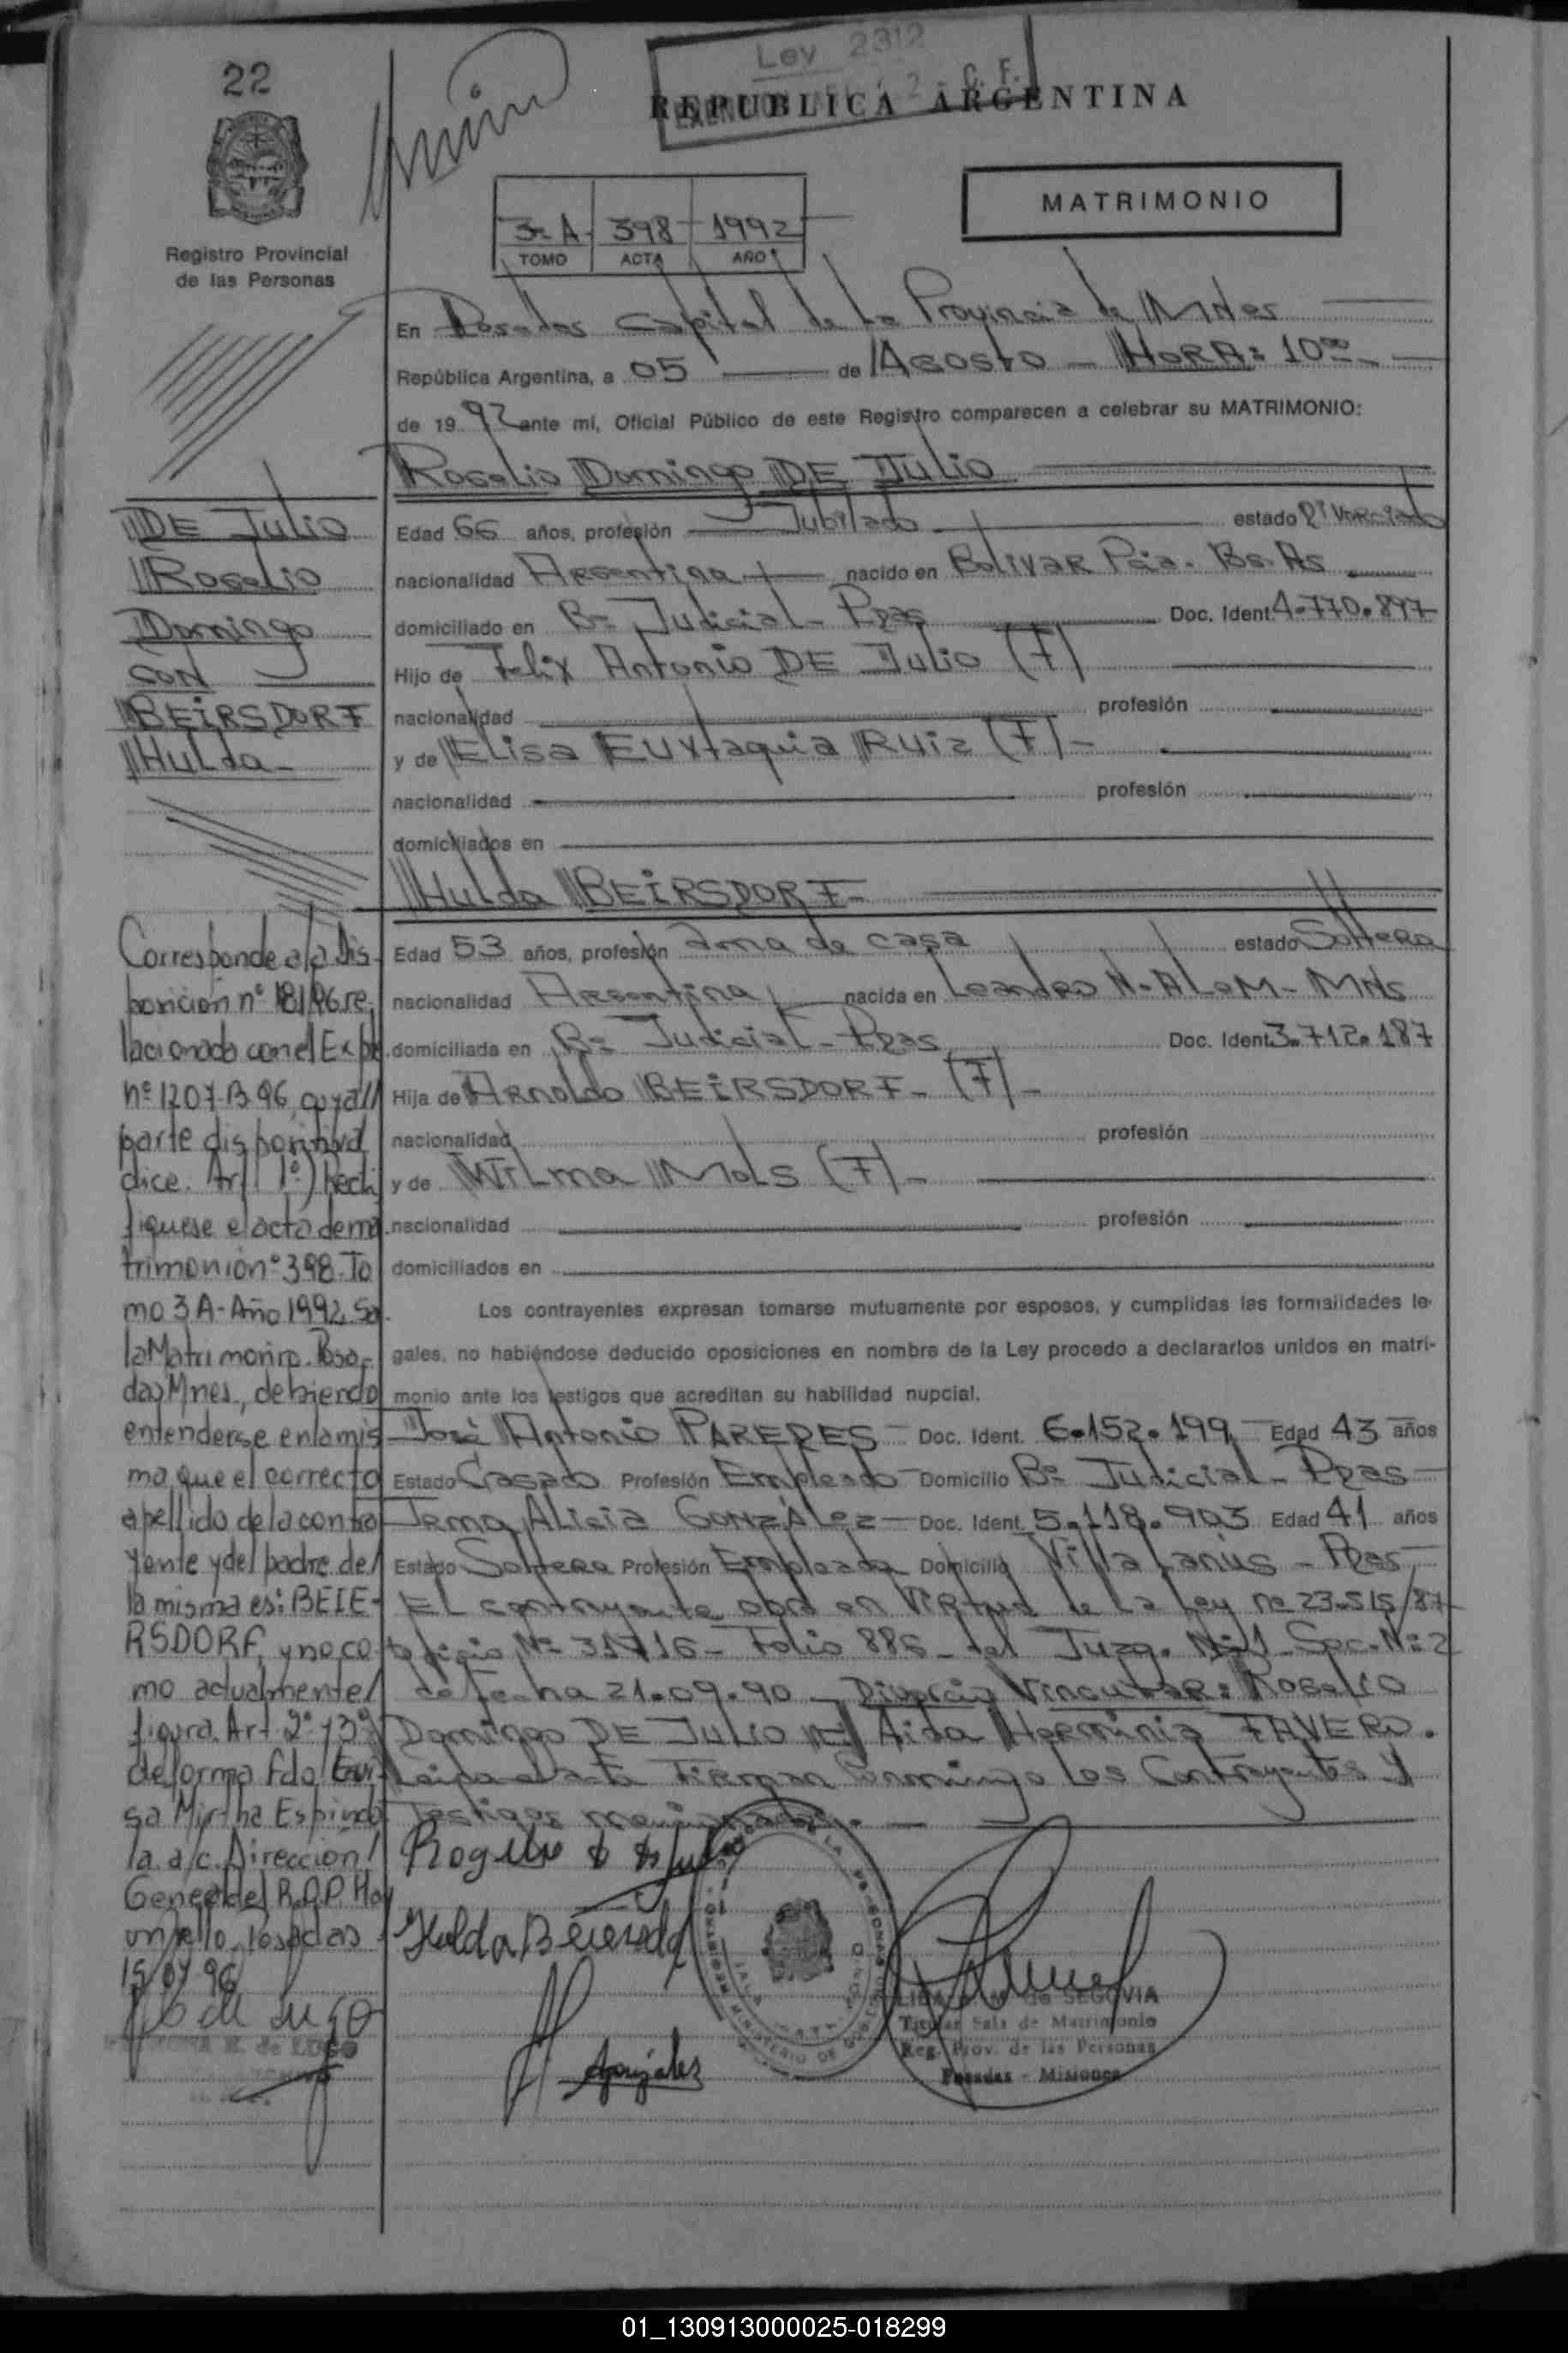 22
Ley 2312
REPUBLICA ARGENTINA
MATRIMONIO
3-A- 398- 1992
TOMO ACTA AÑO
Registro Provincial
de las Personas
En Posadas Capital de la Provincia de Mnes
República Argentina, a 05 de Agosto - HORA: 10ºº-
de 1992 ante mí, Oficial Público de este Registro comparecen a celebrar su MATRIMONIO:
Rogelio Domingo DE Julio
DE Julio
Rogelio
Domingo
CON
BEIRSDORF
Hulda-
Edad 66 años, profesión Jubilado estado Divorciado
nacionalidad Argentina nacido en Bolivar Pcia. Bs. As
domiciliado en Bº Judicial - Pdas Doc. Ident. 4.770.897
Hijo de Felix Antonio DE Julio (F)
nacionalidad profesión
y de Elisa Euxtaquia Ruiz (F)-
nacionalidad profesión
domiciliados en
Hulda BEIRSDORF-
Edad 53 años, profesión ama de casa estado Soltera
nacionalidad Argentina nacida en Leandro N. ALeM - MNs
domiciliada en Bº Judicial - Pdas Doc. Ident. 3.712.187
Hija de Arnoldo BEIRSDORF- (F)-
nacionalidad profesión
y de Wilma Mols (F)-
nacionalidad profesión
domiciliados en
Los contrayentes expresan tomarse mutuamente por esposos, y cumplidas las formalidades le-
gales, no habiéndose deducido oposiciones en nombre de la Ley procedo a declararlos unidos en matri-
monio ante los testigos que acreditan su habilidad nupcial.
José Antonio PAREDES - Doc. Ident. 6.152.199 Edad 43 años
Estado Casado Profesión Empleado Domicilio Bº Judicial - Pdas
Alicia GONZALez - Doc. Ident. 5.118.903 Edad 41 años
Estado Soltera Profesión Empleada Domicilio Villa Lanus - Pdas
El contrayente obra en Virtud de la Ley nº 23.515/87
oficio Nº 31716 - Folio 886 - del Juzg. Nº 1 - Sec. Nº 2
de fecha 21.09.90 - Divorcio Vincular: Rogelio
Domingo DE Julio Aida Herminia FAVERO.
Leida el acta Firman Conmigo los Contrayentes y
Testigos mencionados.-
Corresponde a la Dis-
posición nº 181/96 re
lacionada con el Expte.
nº 1207-B-96 cuya
parte dispositiva
dice: Art 1º) Recti
fiquese el acta de ma
trimonio nº 398. To
mo 3A - Año 1992. Sa
la Matrimonio. Posa-
das Mnes, debiendo
entenderse en la mis
ma que el correcto
apellido de la contra
yente y del padre de
la misma es: BEIE-
RSDORF, y no co
mo actualmente
figura. Art 2º y 3º
de forma Fdo
sa Mirtha Espindo
la a/c. Dirección
Gene del R.P.P. Hay
un sello. Posadas
15/07 96
Hulda Beiersdorf
González
de SEGOVIA
Titular Sala de Matrimonio
Reg. Prov. de las Personas
Posadas - Misiones
de LUGO
01_130913000025-018299